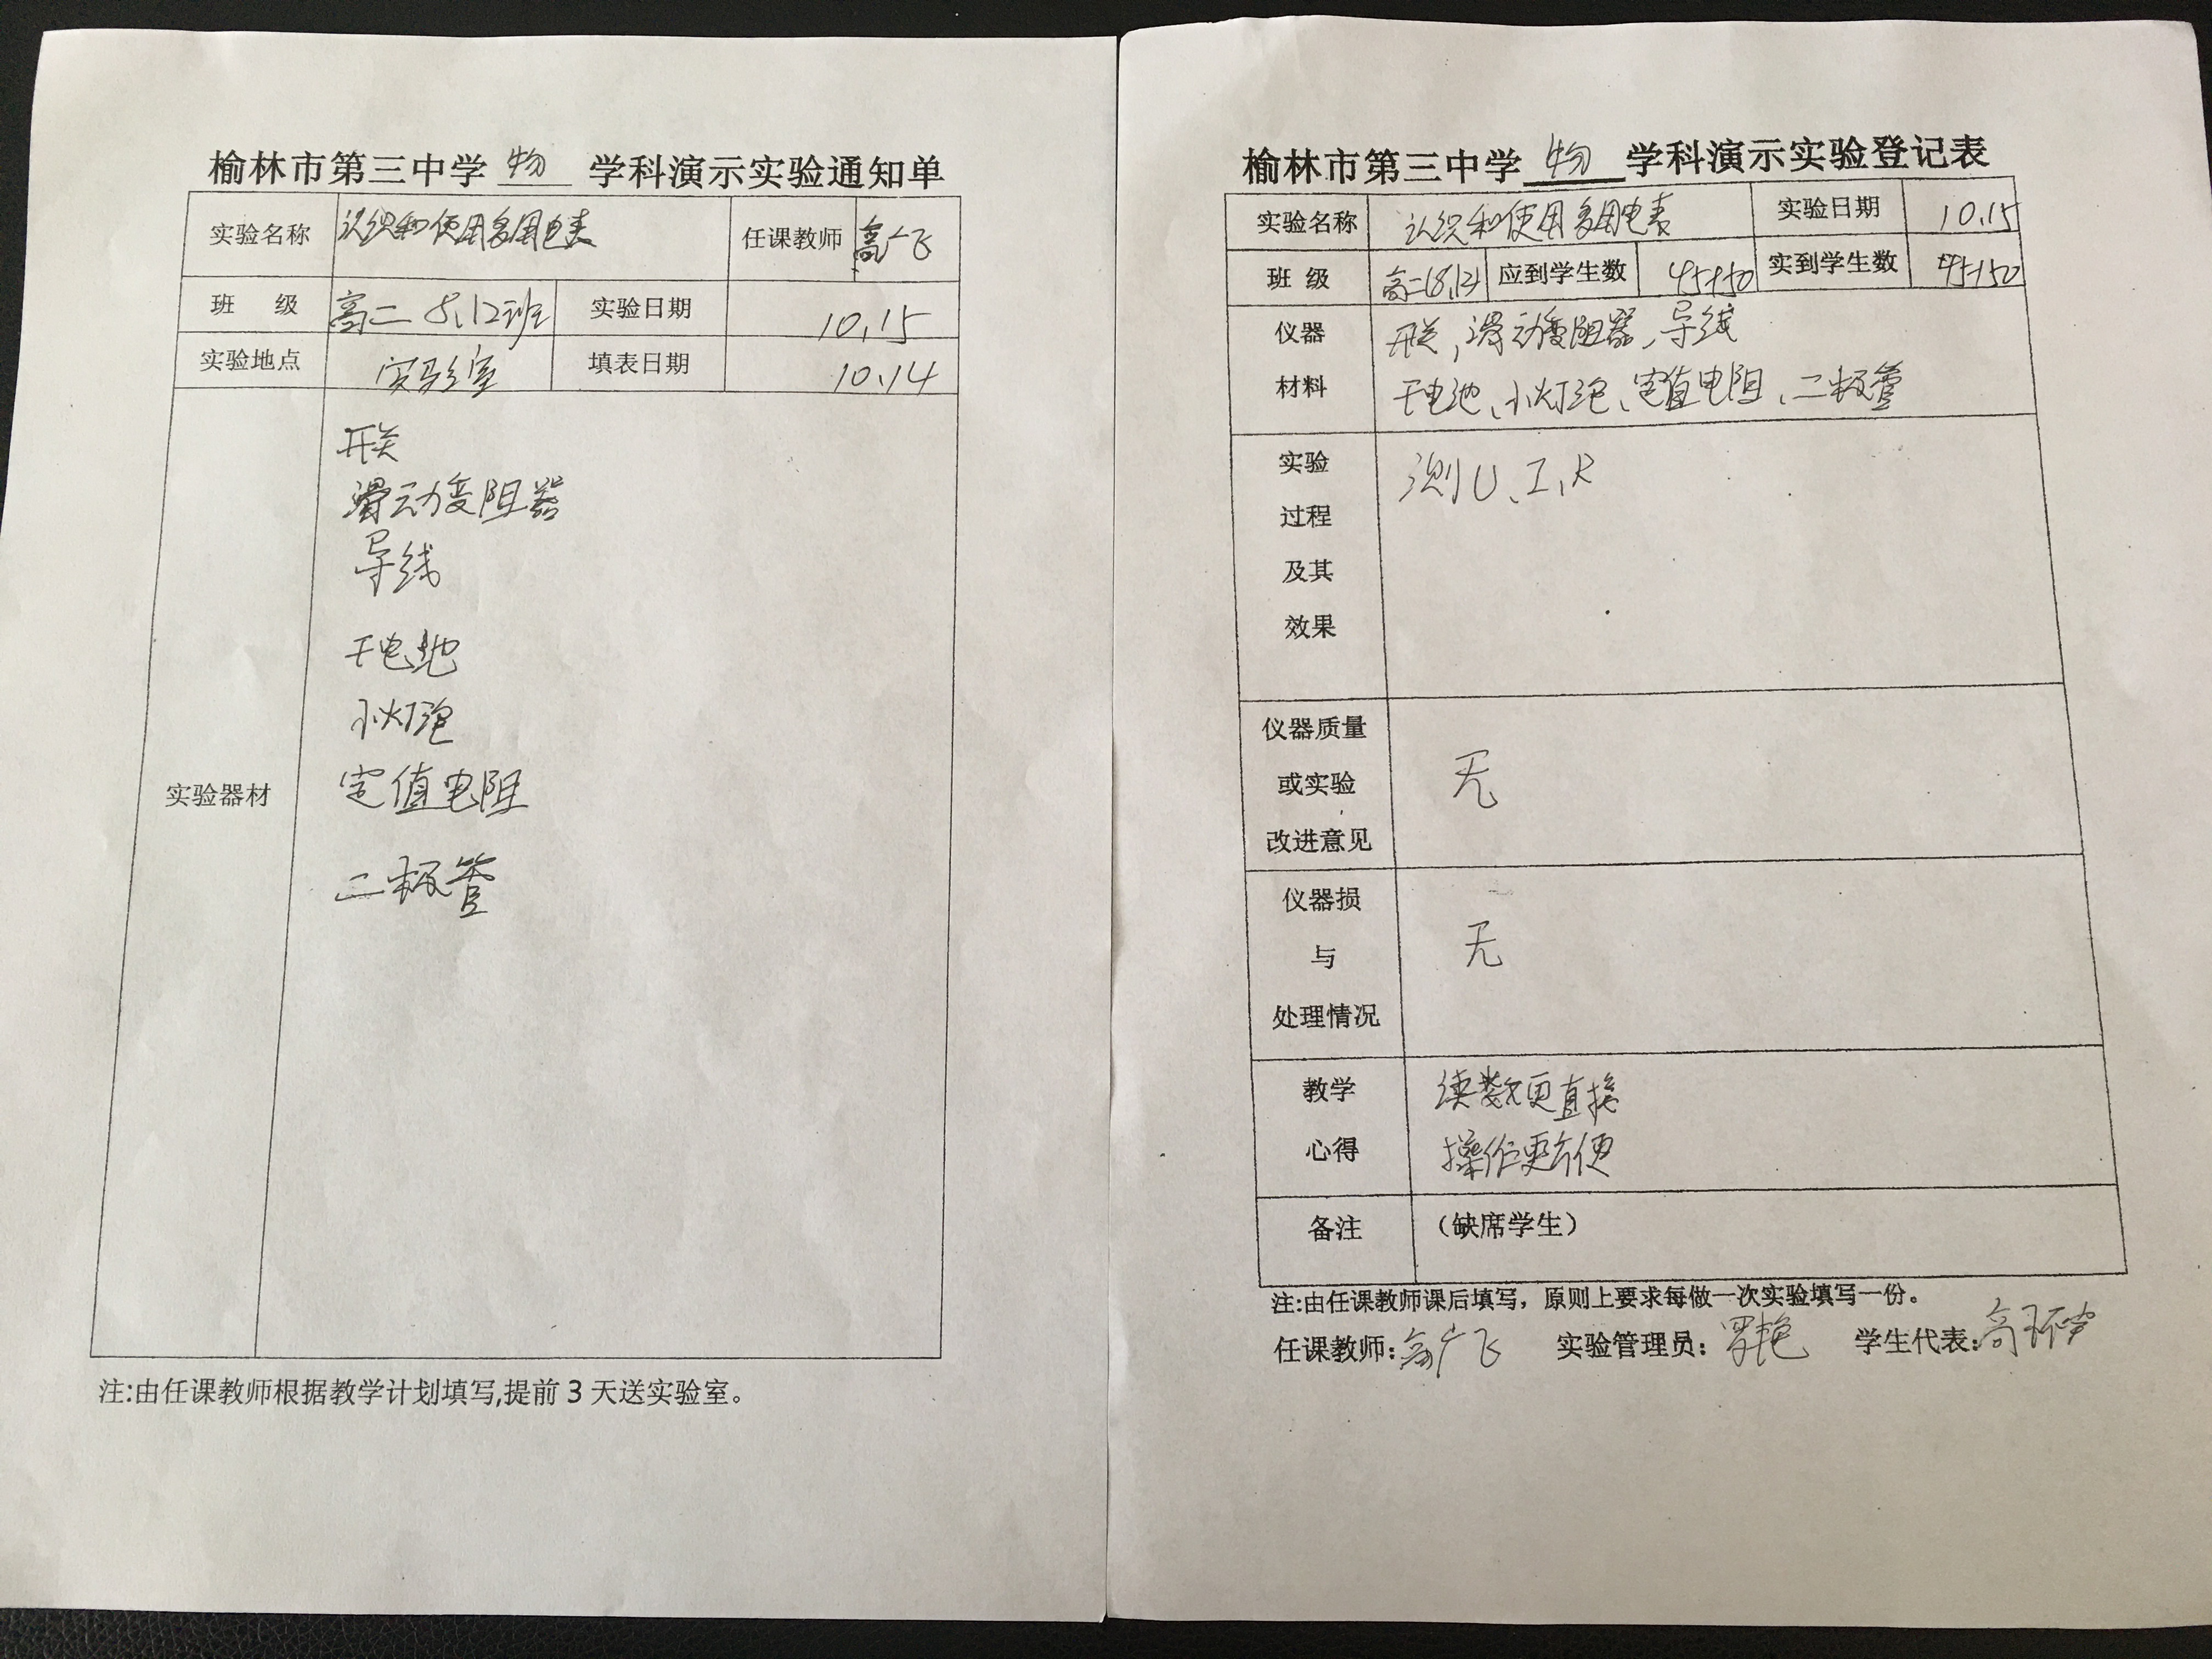 榆林市第三中学 物 学科演示实验通知单
实验名称 认织和使用多用电表 任课教师 高广飞
班 级 高二 8、12班 实验日期 10.15
实验地点 实验室 填表日期 10.14
实验器材
开关
滑动变阻器
导线
干电池
小灯泡
定值电阻
二极管
注:由任课教师根据教学计划填写,提前 3 天送实验室。
榆林市第三中学 物 学科演示实验登记表
实验名称 认织和使用多用电表 实验日期 10.15
班 级 高二(8,12) 应到学生数 45+50 实到学生数 45+50
仪器 开关,滑动变阻器,导线
材料 干电池、小灯泡、定值电阻、二极管
实验 测U、I、R
过程
及其
效果
仪器质量
或实验 无
改进意见
仪器损
与 无
处理情况
教学 读数更直接
心得 操作更方便
备注 (缺席学生)
注:由任课教师课后填写，原则上要求每做一次实验填写一份。
任课教师: 高广飞 实验管理员: 罗艳 学生代表: 高